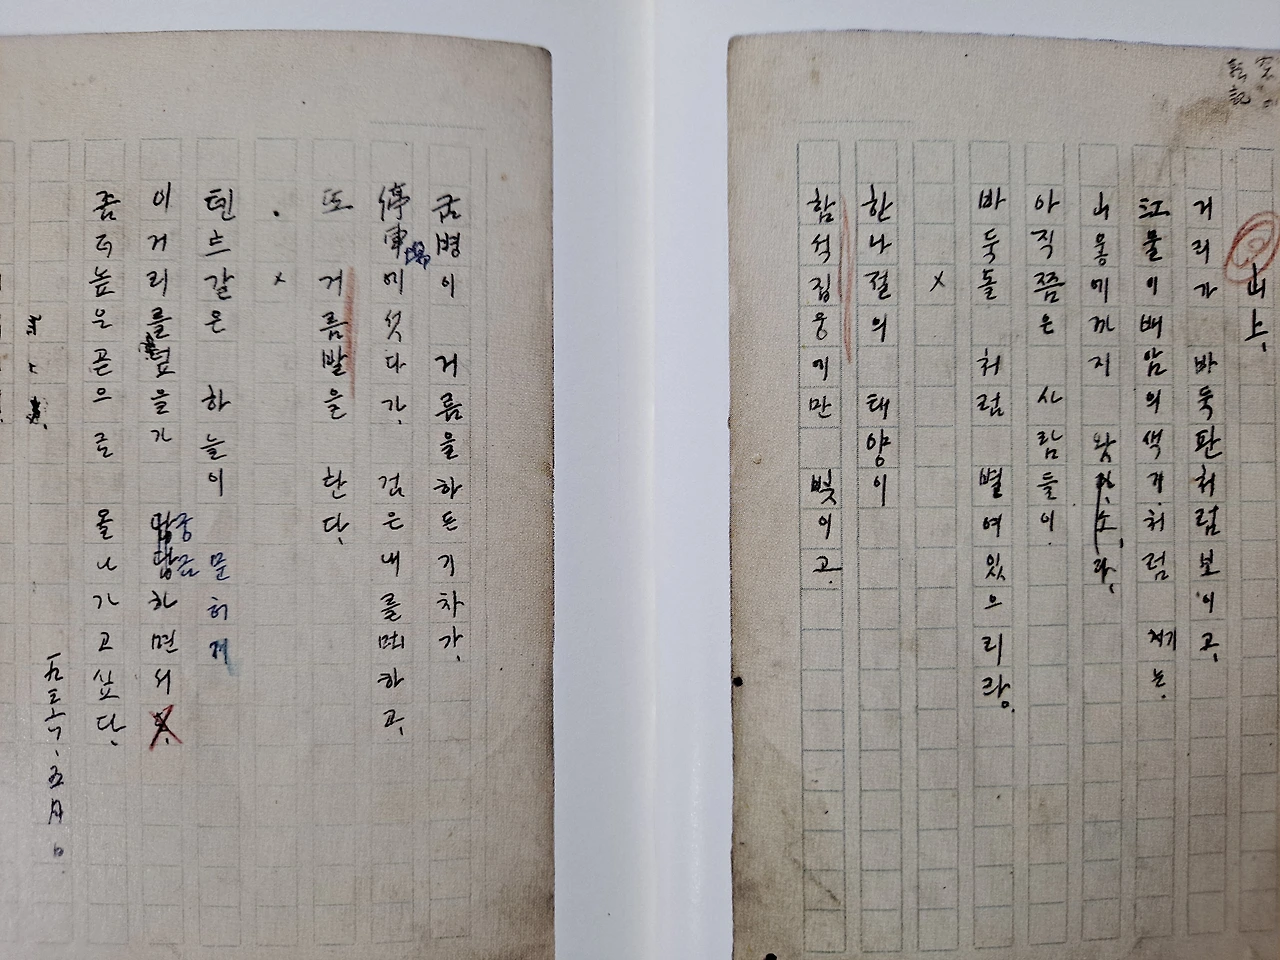 山上.
거리가 바둑판처럼보이고,
江물이배암의색기처럼 기는
山웋에까지 왔다.
아직쯤은 사람들이
바둑돌 처럼 별여있으리라.
×
한나절의 태양이
함석집웅에만 빛이고,
굼병이 거름을하든기차가,
停車場에섯다가, 검은내를吐하고,
또 거름발을 탄다.
×
텐트같은 하늘이 문허저
이거리를덮을가 궁금하면서
좀더높은곧으로 올나가고싶다.
一九三六、五月、日